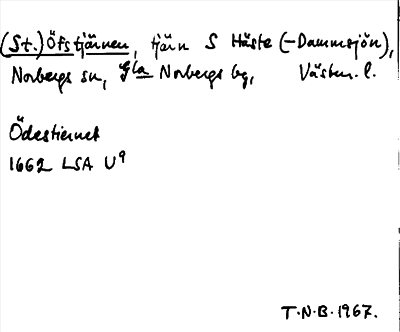 (St.) Öfstjärnen, tjärn S Häste (-Dammsjön),
Norbergs sn, Gla Norbergs bg, Västm. l.
Ödestiernet
1662 LSA U9
T.N.B. 1967.